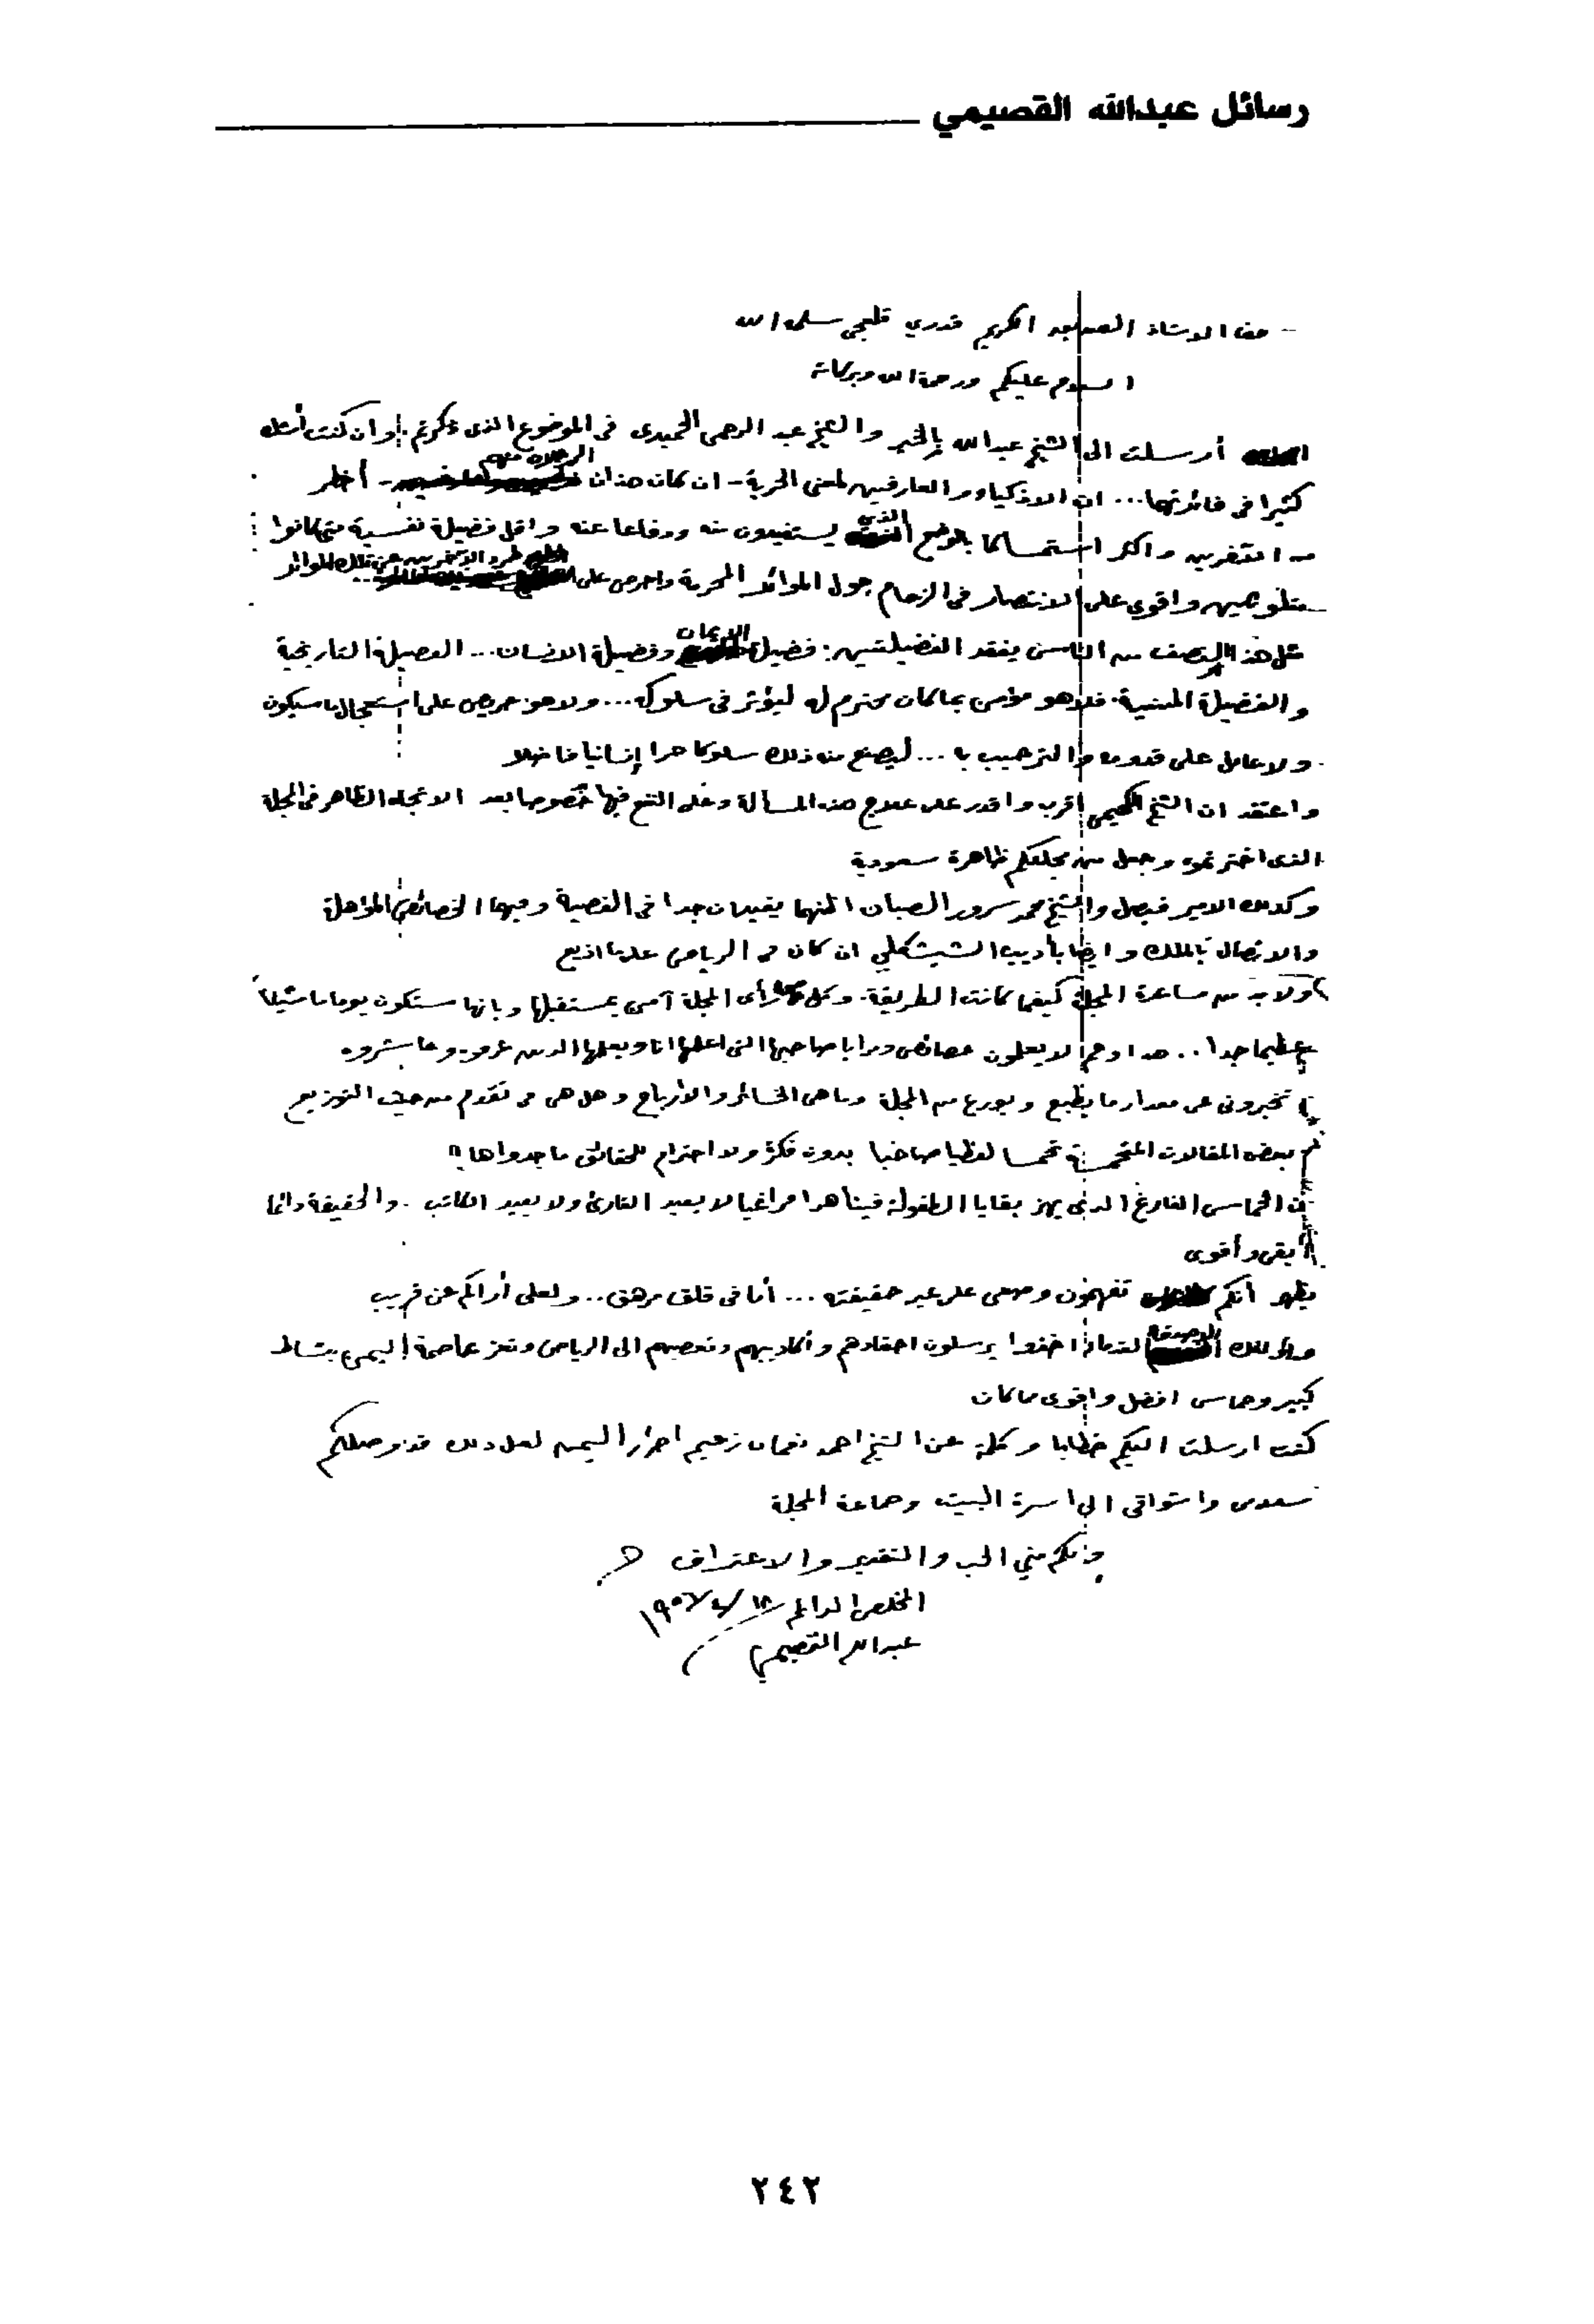 رسائل عبدالله القصيمي
الاستاذ الصديق الكريم قدري قلعجي سلمه الله
السلام عليكم ورحمة الله وبركاته
أرسلت الى الشيخ عبدالله بالخير والشيخ عبد الرحمن الحميدى فى الموضوع الذى ذكرتم وان كنت أشك
كثيرا فى فائدتهما... ان الاذكياء والعارفين لمعنى الحرية - ان كان هذان الرجلان منهم - أخطر
من الآخرين واكثر استمساكا بالوضع الذى يستفيدون منه ودفاعا عنه واقل فضيلة نفسية
واقوى على الانتصار فى الزحام حول الموائد المحرمة واحرص على طرد الآخرين عن تلك الموائد
مثل هذا الصنف من الناس يفقد الفضيلتين: فضيلة الايمان وفضيلة الانسان... الفضيلة التاريخية
والفضيلة المدنية. فلا هو مؤمن بما كان محترم له ليؤثر فى سلوكه... ولا هو حريص على استعجال ما سيكون
ولا عامل على قدومه والترحيب به... ليصنع من ذلك سلوكا حرا إنسانيا فاضلا
واعتقد ان الشيخ اقرب واقدر على علاج هذه المسألة وفيها خصوصا بعد الاتجاه الظاهر فى المجلة
الذى اخترتموه وجعل من مجلتكم ظاهرة سعودية
وكذلك الامير فيصل والشيخ محمد سرور الصبان انهما يفيدان جدا فى القضية وفيهما الخصائص المؤهلة
والاتصال بالملك وايضا بأديب الشيشكلي ان كان فى الرياض
ولا بد من مساعدة المجلة كيفما كانت الطريقة. وكل من رأى المجلة آمن بمستقبلها وبانها ستكون يوما ما شيئا
عظيما جدا.. هذا وهم لا يعلمون خصائص ومزايا صاحبها التى اعلمها انا ويعلمها الذين عرفوه وعاشروه
تخبرونى عن مقدار ما يطبع ويوزع من المجلة وما هى الخسائر والأرباح وهل هى فى تقدم من حيث التوزيع
بعض المقالات المتحمسة تحمسا لفظيا صاخبا بدون فكرة ولا احترام للحقائق ما جدواها؟
ان الحماس الفارغ الذى يهز بقايا الطفولة فينا لا يفيد القارئ ولا يفيد الكاتب. والحقيقة دائما
أبقى وأقوى
يظهر أنكم تفهمون وضعى على غير حقيقته... أنا فى قلق مرهق.. ولعلى أراكم عن قريب
وأولئك الاصدقاء القدماء اخذوا يرسلون احقادهم وأكاذيبهم وتعصبهم الى الرياض وتعز عاصمة اليمن بنشاط
كبير وحماس افضل واقوى مما كان
كنت ارسلت اليكم خطابا وكلمة عن الشيخ احمد نعمان زعيم احرار اليمن لعل ذلك قد وصلكم
واشواقى الى اسرة البيت وجماعة المجلة
ولكم مني الحب والتقدير والاعتراف
المخلص الدائم ١٨/٤/١٩٥٧
عبدالله القصيمي
٢٤٢